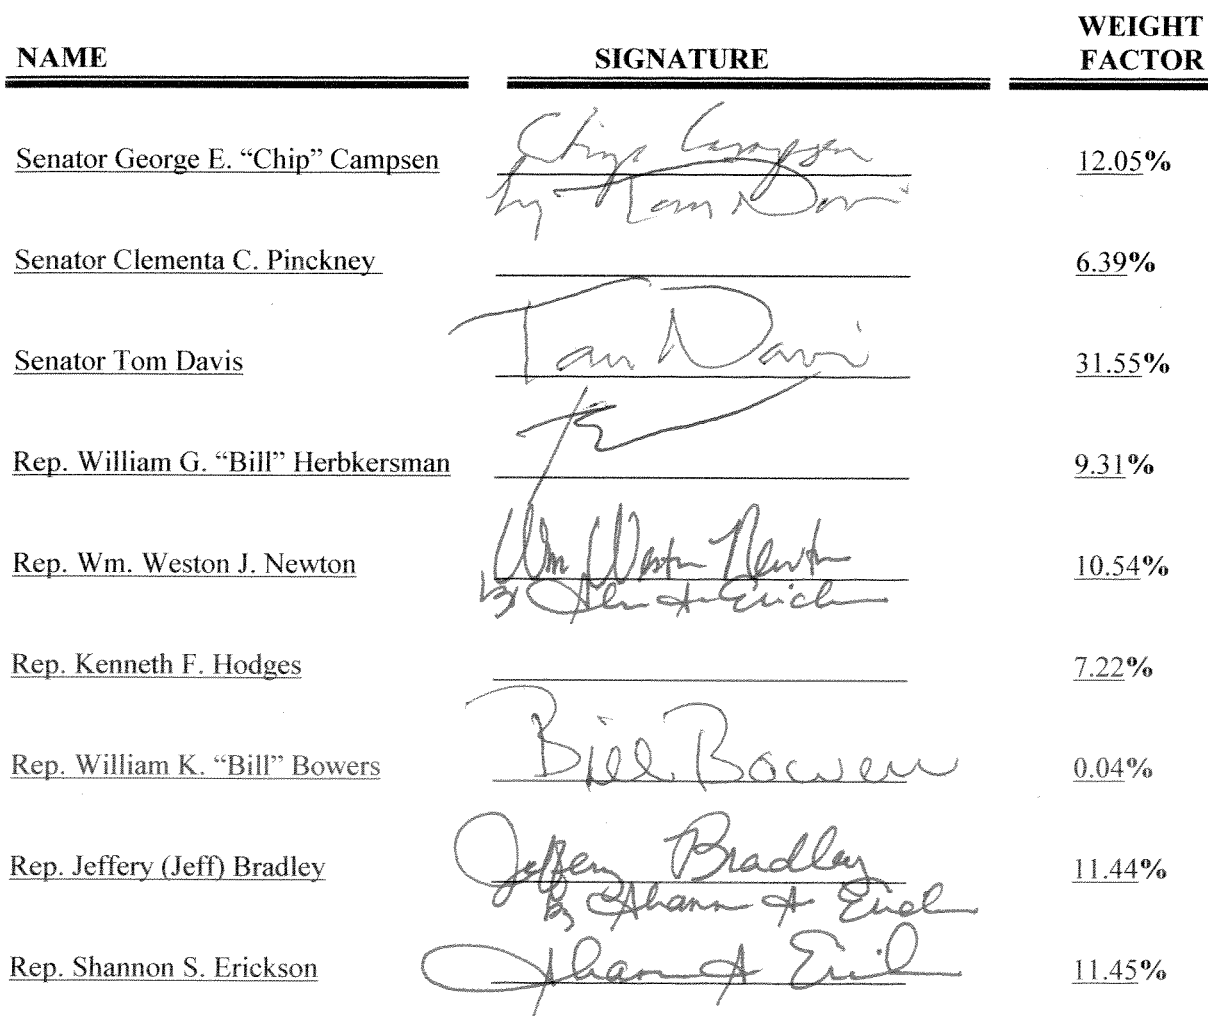 WEIGHT
NAME SIGNATURE FACTOR
Chip Campsen
Senator George E. “Chip” Campsen 12.05%
by Tom Davis
Senator Clementa C. Pinckney 6.39%
Senator Tom Davis Tom Davis 31.55%
Rep. William G. “Bill” Herbkersman 9.31%
Rep. Wm. Weston J. Newton Wm Weston Newton 10.54%
By Shannon S Erickson
Rep. Kenneth F. Hodges 7.22%
Rep. William K. “Bill” Bowers Bill Bowers 0.04%
Rep. Jeffery (Jeff) Bradley Jeffery Bradley 11.44%
By Shannon S Erickson
Rep. Shannon S. Erickson Shannon S Erickson 11.45%